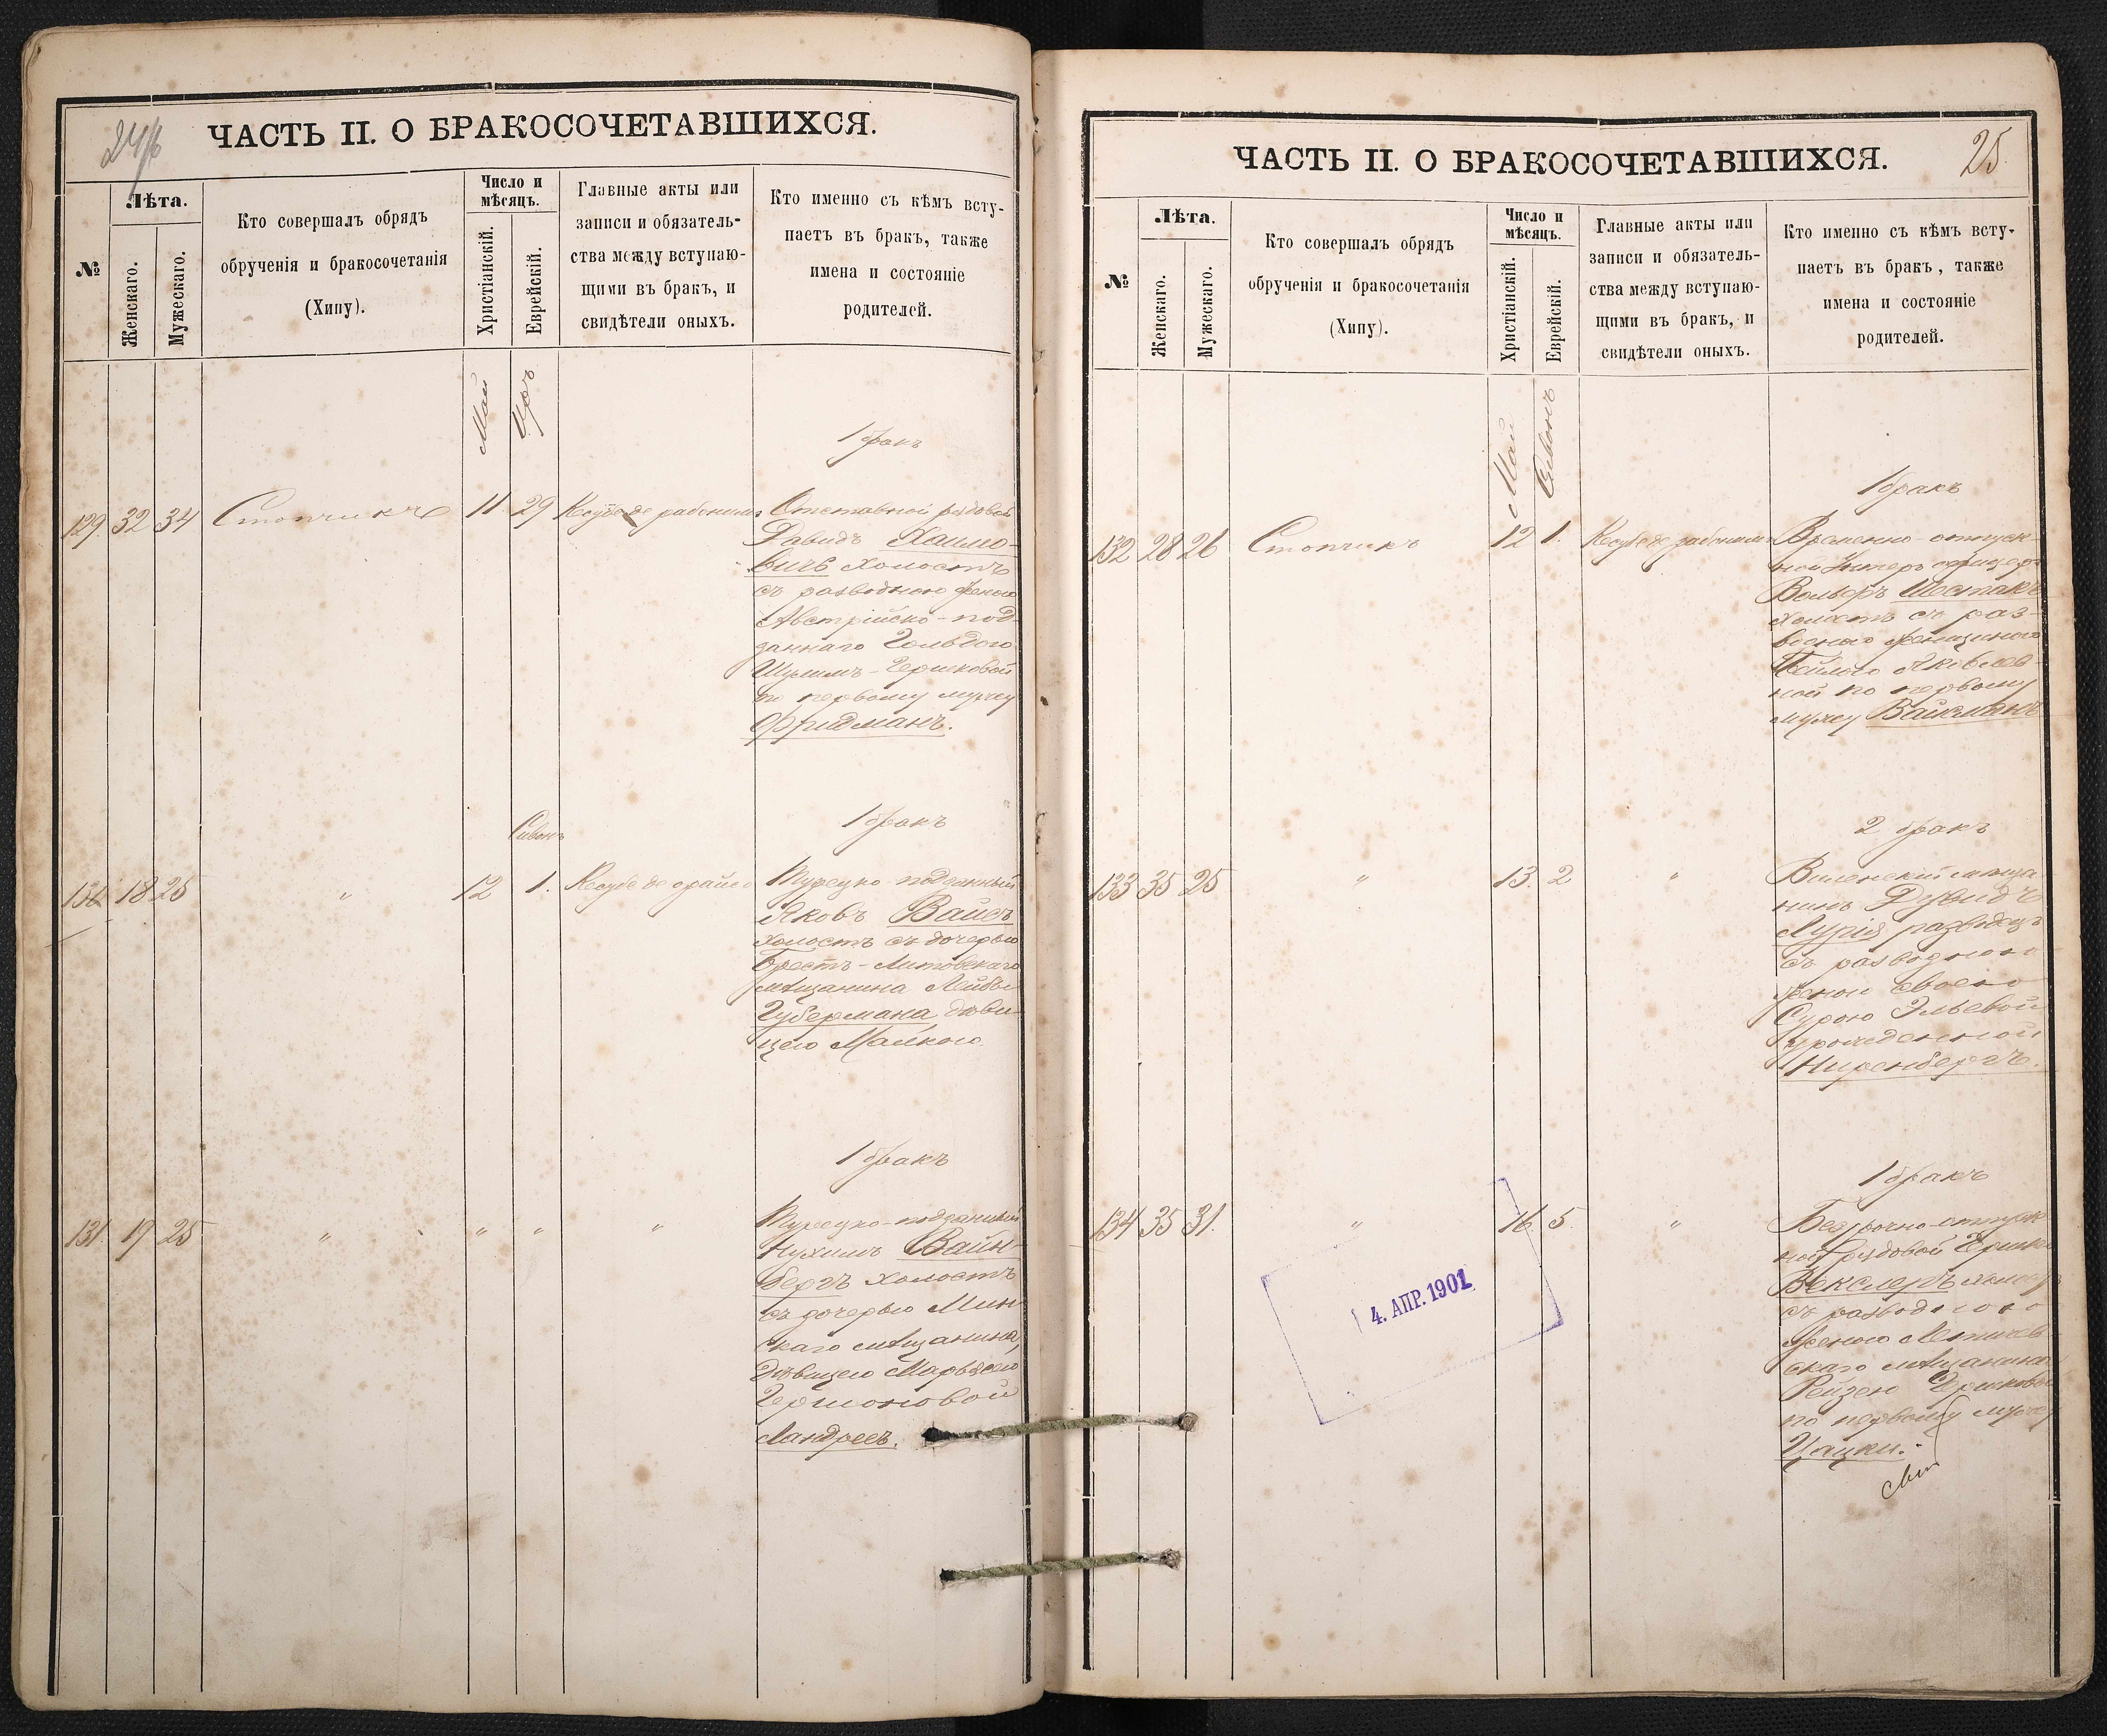 24/б
ЧАСТЬ II. О БРАКОСОЧЕТАВШИХСЯ.
№
Лѣта.
Женскаго.
Мужескаго.
Кто совершалъ обрядъ
обрученія и бракосочетанія
(Хипу).
Число и
мѣсяцъ.
Христіанскій.
Еврейскій.
Главные акты или
записи и обязатель-
ства между вступаю-
щими въ бракъ, и
свидѣтели оныхъ.
Кто именно съ кѣмъ всту-
паетъ въ бракъ, также
имена и состояніе
родителей.
Май
Иръ
1 бракъ
129. 32 34 Стопчикъ 11 29
Отставной рядовой
Давидъ Хаимо-
вичъ холостъ
съ разводною женою
Австрійско-под-
даннаго Гольдою
Шулимъ-Гершковой
по первому мужу
Фридманъ.
Сивонъ
1 бракъ
130 18 25 " 12 1.
Турецко-подданный
Яковъ Вайсъ
холостъ съ дочерью
Брестъ-Литовскаго
мѣщанина Лейбы
Губермана дѣви-
цею Малкою.
1 бракъ
131. 19 25 " " " "
Турецко-подданный
Нухимъ Вайн-
бергъ холостъ
съ дочерью Мин-
скаго мѣщанина,
дѣвицею Марьясею
Гершоновой
Ландресъ.
25.
ЧАСТЬ II. О БРАКОСОЧЕТАВШИХСЯ.
№
Лѣта.
Женскаго.
Мужескаго.
Кто совершалъ обрядъ
обрученія и бракосочетанія
(Хипу).
Число и
мѣсяцъ.
Христіанскій.
Еврейскій.
Главные акты или
записи и обязатель-
ства между вступаю-
щими въ бракъ, и
свидѣтели оныхъ.
Кто именно съ кѣмъ всту-
паетъ въ бракъ, также
имена и состояніе
родителей.
Май
Сивонъ
1 бракъ
132 28 26 Стопчикъ 12 1.
Временно-отпуск-
ной Унтеръ офицеръ
Вольфъ Шостакъ
холостъ съ раз-
водною женщиною
Бейлою Яковлев-
ной по первому
мужу Вайкманъ
2 бракъ
133 35 25 " 13. 2 "
Виленскій мѣща-
нинъ Давидъ
Лурія разведецъ
съ разводною
женою своею
Сурою Эльевой
урожденной
Ниренбергъ.
1 бракъ
134 35 31. " 16. 5. "
Безсрочно-отпуск-
ной рядовой Гершко
Векслеръ холостъ
съ разводною
женою Летичев-
скаго мѣщанина
Рейзею Гершковой
по первому мужу
Цацки.
4. АПР. 1901